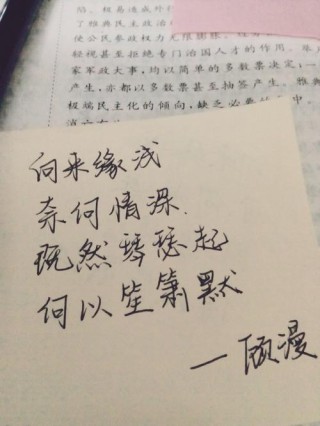 陷，极易造成外
了雅典民主政治
使公民参政权力无限膨胀
轻视甚至拒绝专门治国人才的作用。
家军政大事，均以简单的多数票决定，一
产生，亦都以多数票甚至抽签产生。雅典
极端民主化的倾向，缺乏必要的
向来缘浅
奈何情深
既然琴瑟起
何以笙箫默
一顾漫